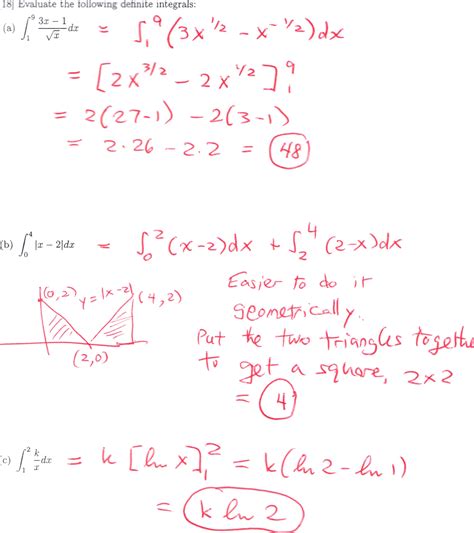 18] Evaluate the following definite integrals:
(a) ∫₁⁹ (3x − 1)/√x dx = ∫₁⁹ (3x^{1/2} − x^{-1/2}) dx
= [2x^{3/2} − 2x^{1/2}]₁⁹
= 2(27-1) − 2(3-1)
= 2·26 − 2·2 = 48
(b) ∫₀⁴ |x − 2|dx = ∫₀² (x-2)dx + ∫₂⁴ (2-x)dx
Easier to do it
geometrically.
(0,2) y=|x-2| (4,2)
Put the two triangles togethe
to get a square, 2x2
(2,0)
= 4
(c) ∫₁² k/x dx = k [ln x]₁² = k(ln 2 − ln 1)
= k ln 2